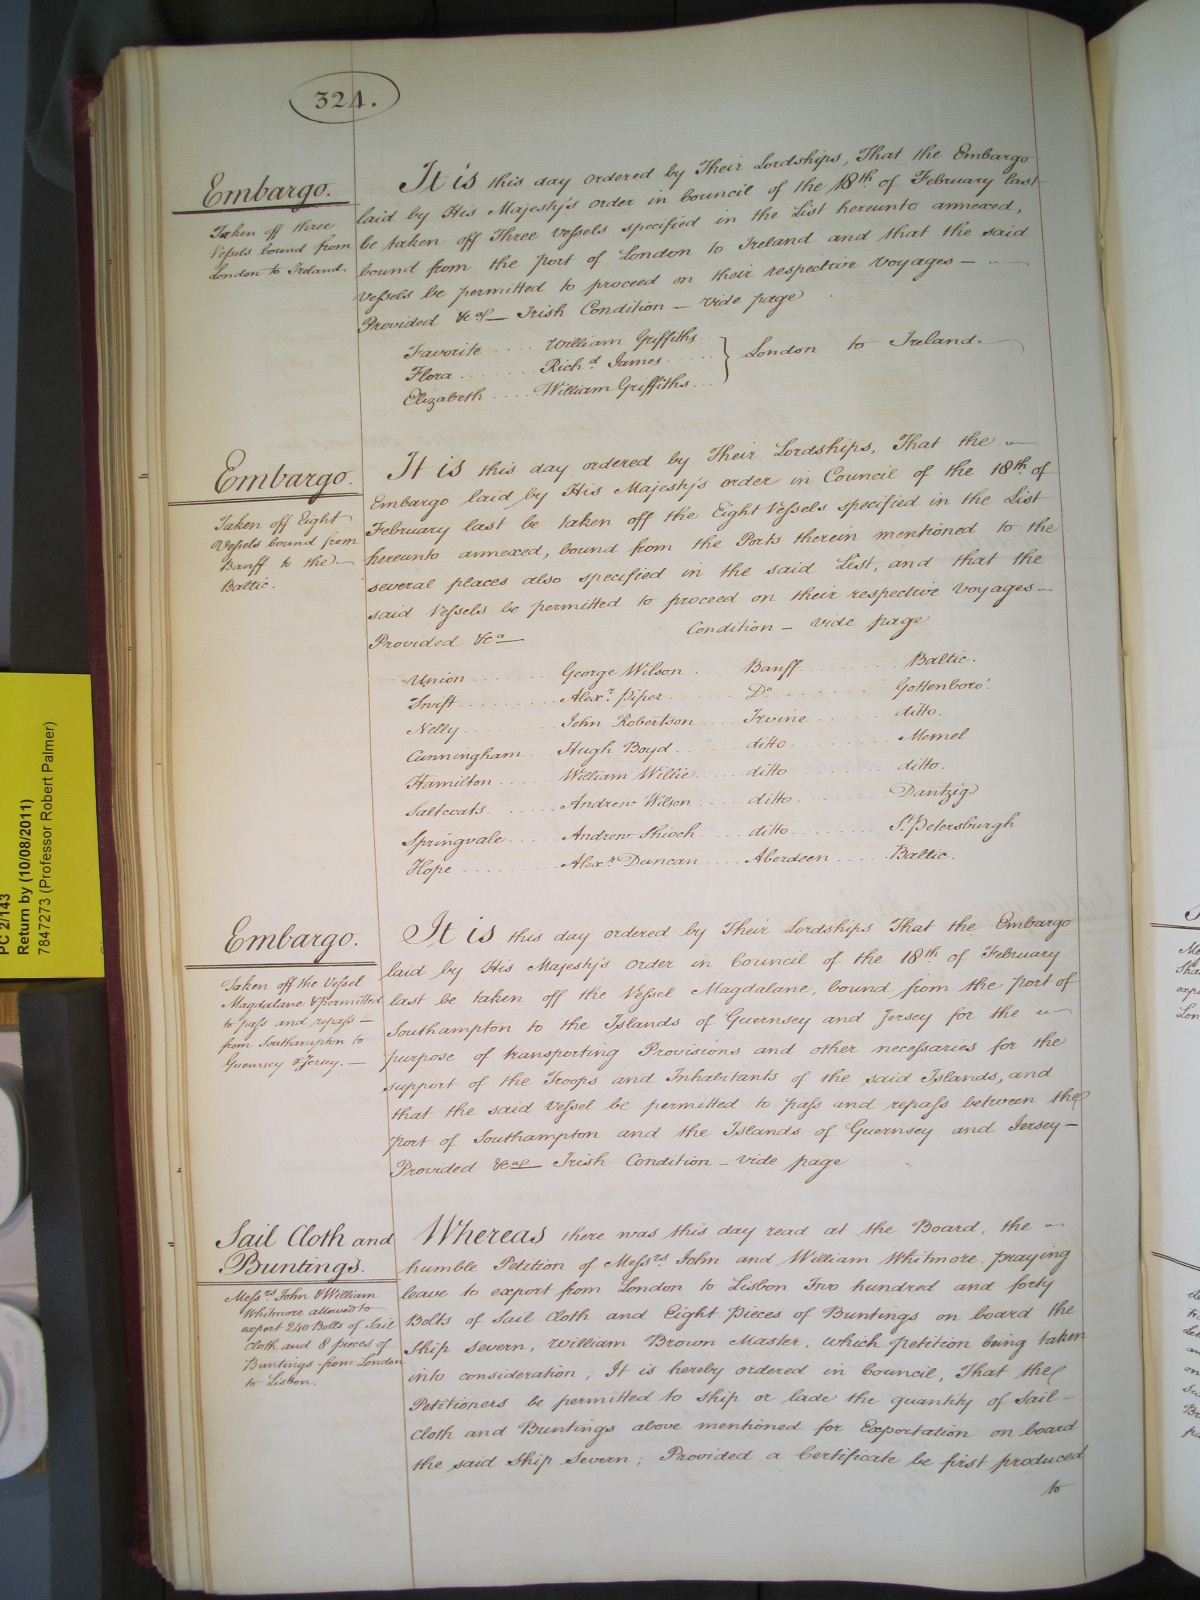 324.
Embargo.
Taken off three
Vessels bound from
London to Ireland.
It is this day ordered by Their Lordships, That the Embargo
laid by His Majesty's order in Council of the 18th of February last
be taken off Three Vessels specified in the List hereunto annexed,
bound from the Port of London to Ireland and that the said
Vessels be permitted to proceed on their respective Voyages —
Provided &ca — Irish Condition — vide page
Favorite .... William Griffiths
Flora ....... Richd James ..... } London to Ireland.
Elizabeth .... William Griffiths ...
Embargo.
Taken off Eight
Vessels bound from
Banff to the —
Baltic.
It is this day ordered by Their Lordships, That the
Embargo laid by His Majesty's order in Council of the 18th of
February last be taken off the Eight Vessels specified in the List
hereunto annexed, bound from the Ports therein mentioned to the
several places also specified in the said List, and that the
said Vessels be permitted to proceed on their respective Voyages —
Provided &ca — Condition — vide page
Union ........ George Wilson .... Banff ........ Baltic.
Swift ........ Alexr Piper ...... Do ........ Gottenboro'.
Nelly ........ John Robertson .... Irvine ...... ditto.
Cunningham ... Hugh Boyd ..... ditto ....... Memel
Hamilton ..... William Willie .... ditto ....... ditto.
Saltcoats ..... Andrew Wilson .... ditto ....... Dantzig
Springvale .... Andrew Shioch .... ditto ....... St Petersburgh
Hope ......... Alexr Duncan .... Aberdeen .... Baltic.
Embargo.
Taken off the Vessel
Magdalane & permitted
to pass and repass —
from Southampton to
Guernsey & Jersey. —
It is this day ordered by Their Lordships That the Embargo
laid by His Majesty's Order in Council of the 18th of February
last be taken off the Vessel Magdalane, bound from the Port of
Southampton to the Islands of Guernsey and Jersey for the
purpose of transporting Provisions and other necessaries for the
support of the Troops and Inhabitants of the said Islands, and
that the said Vessel be permitted to pass and repass between the
port of Southampton and the Islands of Guernsey and Jersey —
Provided &ca — Irish Condition — vide page
Sail Cloth and
Buntings.
Messrs John & William
Whitmore allowed to
export 240 Bolts of Sail
Cloth and 8 pieces of
Buntings from London
to Lisbon.
Whereas there was this day read at the Board, the
humble Petition of Messrs John and William Whitmore, praying
leave to export from London to Lisbon Two hundred and forty
Bolts of Sail Cloth and Eight Pieces of Buntings on board the
Ship Severn, William Brown Master, which petition being taken
into consideration; It is hereby ordered in Council, That the
Petitioners be permitted to ship or lade the quantity of Sail —
Cloth and Buntings above mentioned for Exportation on board
the said Ship Severn; Provided a Certificate be first produced
to
PC 2/143
Return by (10/08/2011)
7847273 (Professor Robert Palmer)